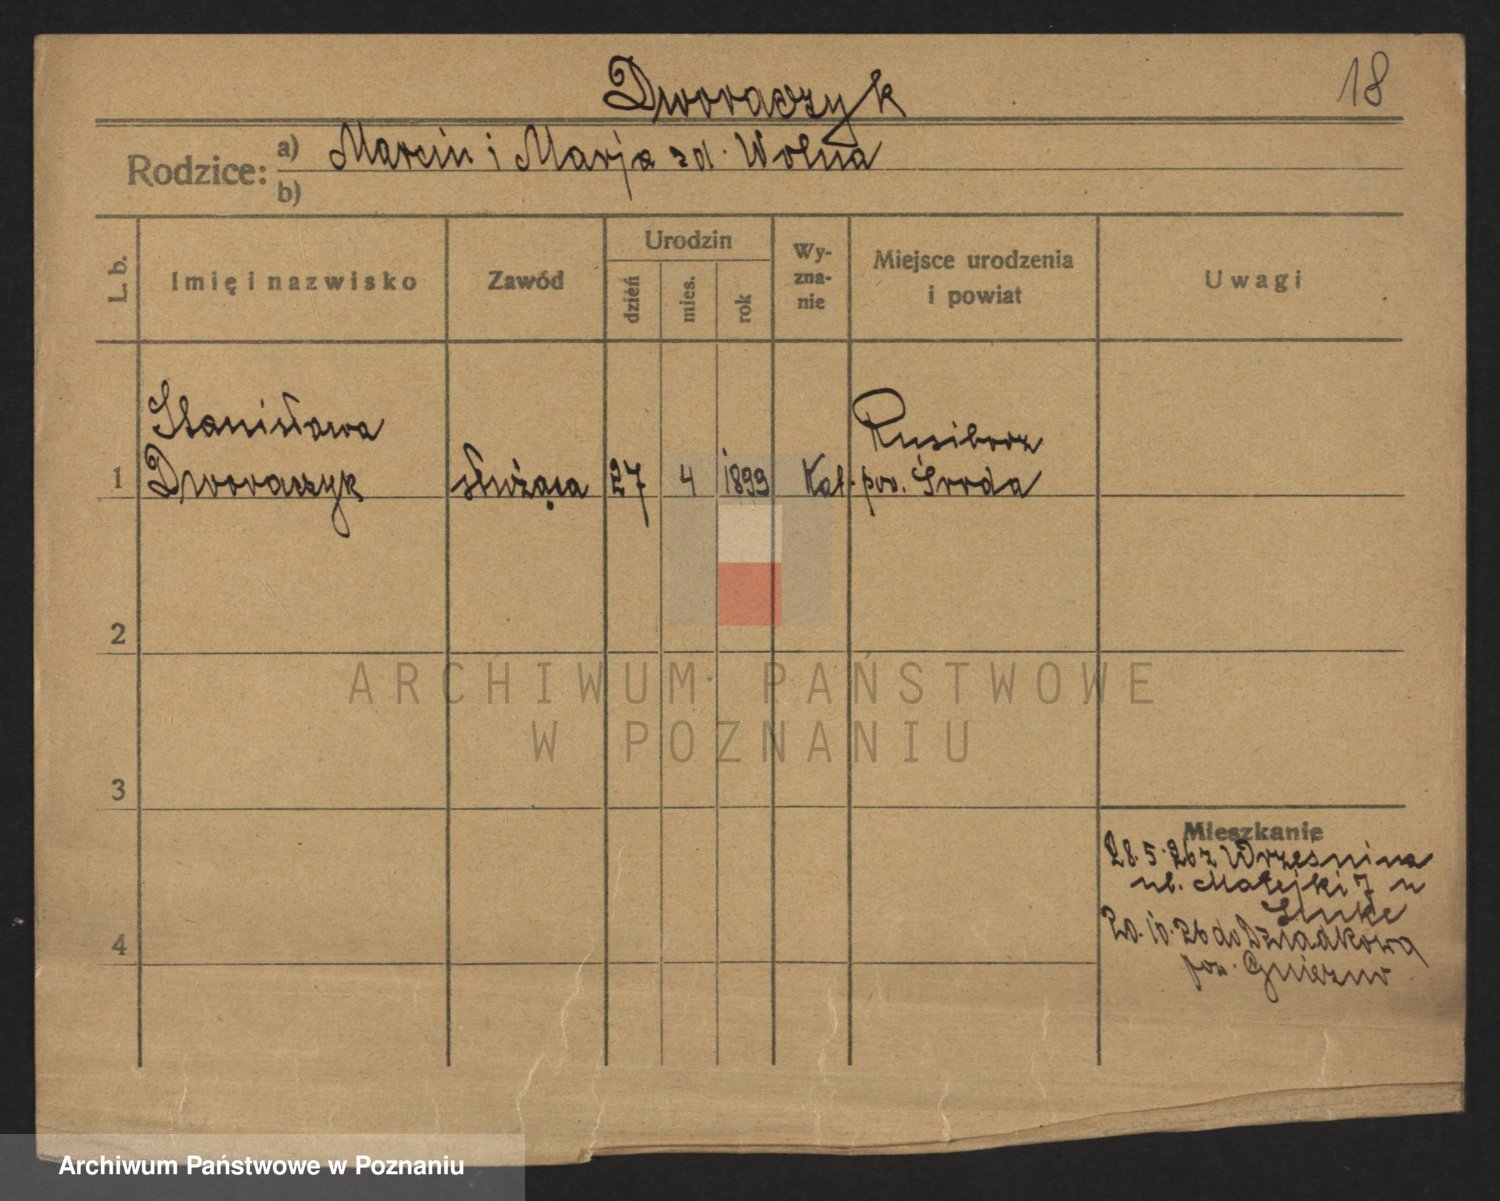 18
Dworaczyk
Rodzice: a) Marcin i Marja zd. Wolna
b)
L. b.
Imię i nazwisko
Zawód
Urodzin
dzień
mies.
rok
Wy-
zna-
nie
Miejsce urodzenia
i powiat
Uwagi
Stanisława
Dworaczyk
1
służąca
27
4
1899
Kat.
Rusiborz
pow. Środa
2
3
4
Mieszkanie
28.5.26 z Wrześni na
ul. Matejki 7 u
20.10.26 do Dziadkowa
pow. Gniezno
ARCHIWUM PAŃSTWOWE
W POZNANIU
Archiwum Państwowe w Poznaniu